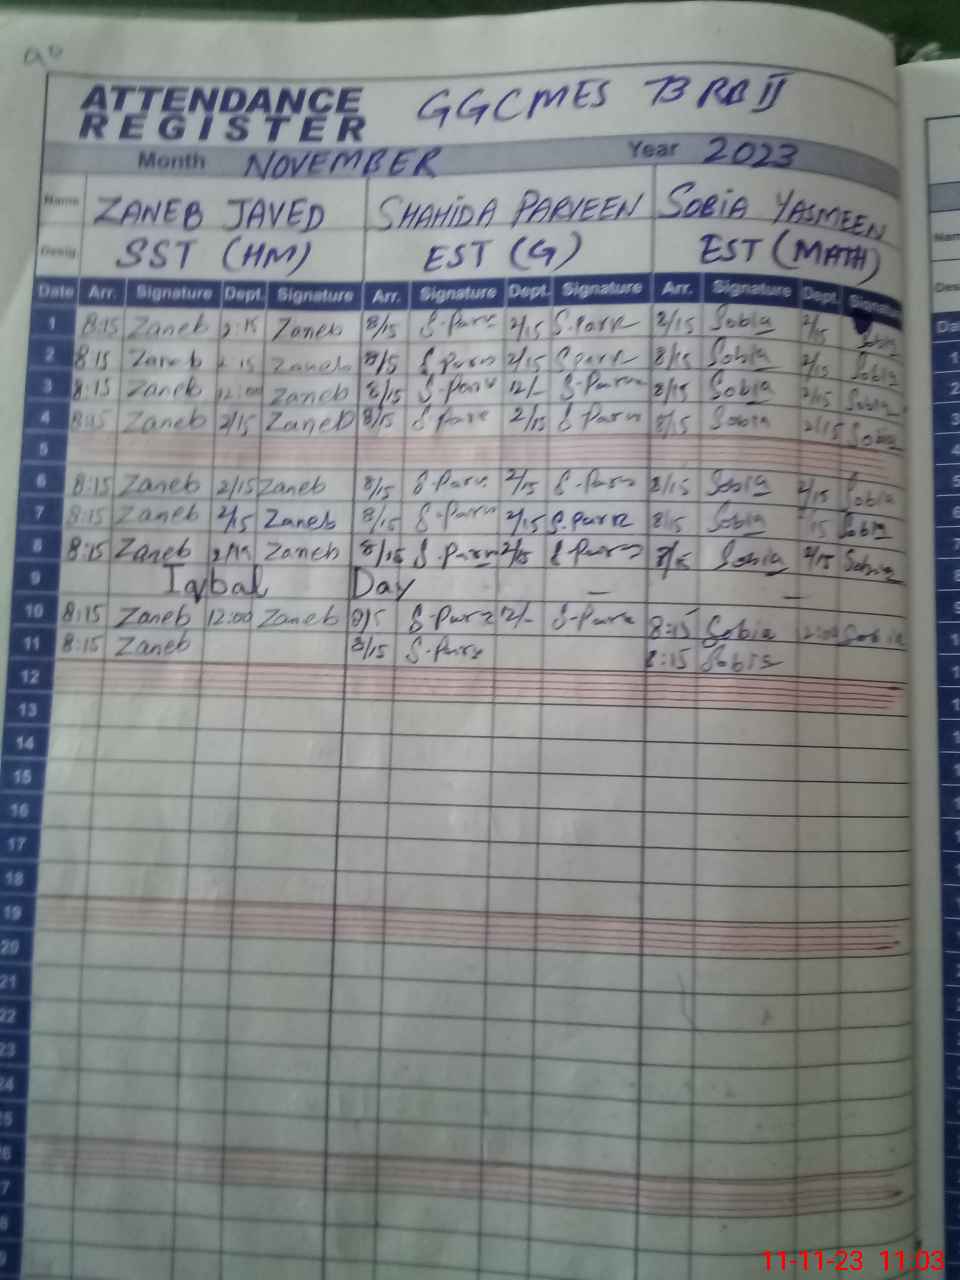 ATTENDANCE REGISTER GGCMES 73 RB II
Month NOVEMBER Year 2023
Name ZANEB JAVED SHAHIDA PARVEEN SOBIA YASMEEN
Desig SST (HM) EST (G) EST (MATH)
Date Arr. Signature Dept. Signature Arr. Signature Dept. Signature Arr. Signature Dept. Signature
1 8:15 Zaneb 2:15 Zaneb 8/15 S.Parv 2/15 S.Parv 8/15 Sobia 2/15 Sobia
2 8:15 Zaneb 2:15 Zaneb 8/15 S.Parv 2/15 S.Parv 8/15 Sobia 2/15 Sobia
3 8:15 Zaneb 12:00 Zaneb 8/15 S-Parv 12/- S-Parv 8/15 Sobia 2/15 Sobia
4 8:15 Zaneb 2/15 Zaneb 8/15 S Parv 2/15 S Parv 8/15 Sobia 2/15 Sobia
5
6 8:15 Zaneb 2/15 Zaneb 8/15 S-Parv 2/15 S-Parv 8/15 Sobia 2/15 Sobia
7 8:15 Zaneb 2/15 Zaneb 8/15 S-Parv 2/15 S.Parv 8/15 Sobia 2/15 Sobia
8 8:15 Zaneb 2/15 Zaneb 8/15 S.Parv 2/15 S-Parv 8/15 Sobia 2/15 Sobia
9 Iqbal Day - -
10 8:15 Zaneb 12:00 Zaneb 8/15 S-Parv 12/- S-Parv 8:15 Sobia 12:00 Sobia
11 8:15 Zaneb 8/15 S-Parv 8:15 Sobia
12
13
14
15
16
17
18
19
20
21
22
23
24
11-11-23 11:03